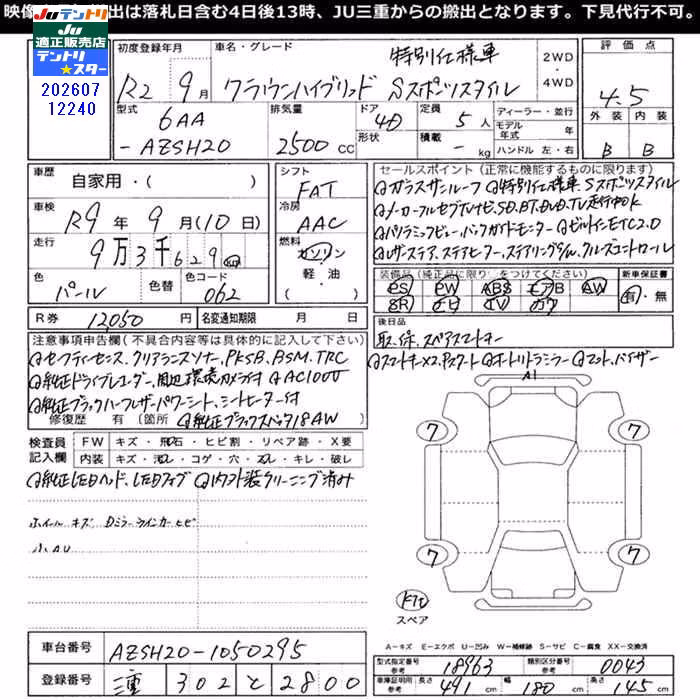 映像 出は落札日含む4日後13時、JU三重からの搬出となります。下見代行不可。
JUテントリ
JU適正販売店
テントリ★スター
202607
12240
初度登録年月
R2年9月
車名・グレード
特別仕様車
クラウンハイブリッド Sスポーツスタイル
2WD・4WD
評価点
4.5
外装 内装
B B
型式
6AA
-AZSH20
排気量
2500CC
ドア 形状
4D
定員 5人
積載 - kg
ディーラー・並行
モデル年式 年
ハンドル 左・右
車歴 自家用・( )
車検 R9年9月(10日)
走行 9万3千629km
色 パール
色替
色コード 062
シフト FAT
冷房 AAC
燃料 ガソリン 軽油・( )
R券 12,050円
名変通知期限 月 日
セールスポイント(正常に機能するものに限ります)
ガラスサンルーフ 特別仕様車 Sスポーツスタイル
メーカーフルセグTVナビ、SD.BT.DVD.TV走行中OK
パノラミックビュー、バックガイドモニター ビルトインETC2.0
レザーステア、ステアヒーター、ステアリングSW、クルーズコントロール
装備品(純正品に限り○をつけてください)
PS PW ABS エアB AW
SR ナビ TV カワ
新車保証書
有・無
後日品
取、保、スペアスマートキー
スマートキーX2、Pスタート オートリトラミラー マット、バイザー
注意事項申告欄(不具合合内容等は具体的に記入して下さい)
セーフティセンス、クリアランスソナー、PKSB、BSM、TRC
純正ドライブレコーダー、周辺環境カメラ付 AC100V
純正ブラックハーフレザーパワーシート、シートヒーター付
修復歴 有 (箇所 純正ブラックスパッタ18AW)
検査員記入欄
FW キズ・飛石・ヒビ割・リペア跡・X要
内装 キズ・汚レ・コゲ・穴・スレ・キレ・破レ
純正LEDヘッド、LEDフォグ 内外装クリーニング済み
ホイールキズ Dミラーウインカーヒビ
小AU
A1
7
7
7
7
スペア
A=キズ E=エクボ U=凹み W=補修跡 S=サビ C=腐食 XX=交換済
車台番号 AZSH20-1050295
登録番号 三重 302 と 2800
型式指定番号 参考 18963
類別区分番号 参考 0043
車庫証明用 参考 長さ 491cm 幅 180cm 高さ 145cm